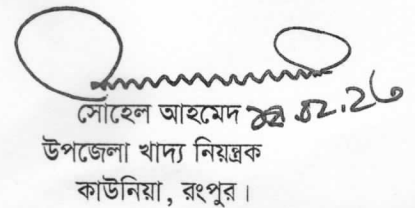 সোহেল আহমেদ
উপজেলা খাদ্য নিয়ন্ত্রক
কাউনিয়া, রংপুর।